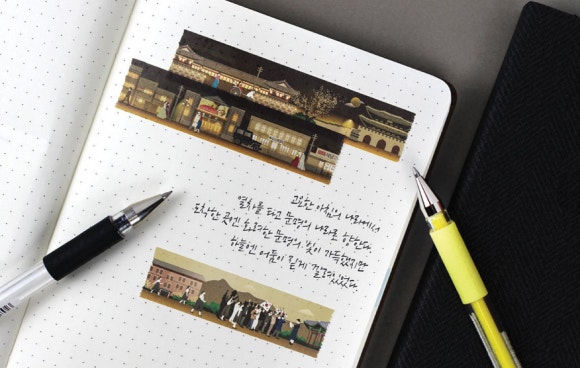 고요한 아침의 나라에서
열차를 타고 문명의 나라로 향한다
도착한 곳엔 화려한 문명의 빛이 가득했지만
하늘엔 어둠이 짙게 깔려있었다.